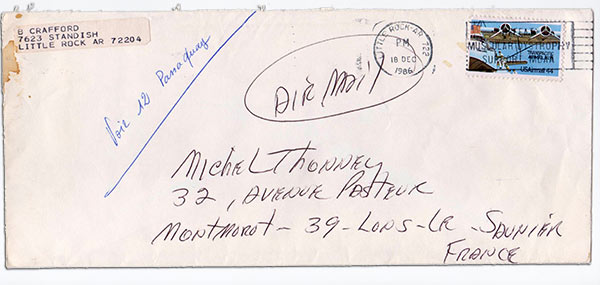 B CRAFFORD
7623 STANDISH
LITTLE ROCK AR 72204
Voir 12 Panaquay
AIR MAIL
LITTLE ROCK AR 722
PM
18 DEC
1986
MUSCULAR DYSTROPHY
SUPPORT MDAA
USAirmail 44
Michel Thonney
32, AVENUE PASTEUR
MONTMOROT - 39 - LONS - LE - SAUNIER
FRANCE